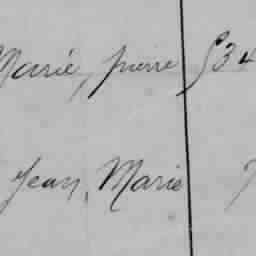 Marie, pierre 34
Jean, Marie